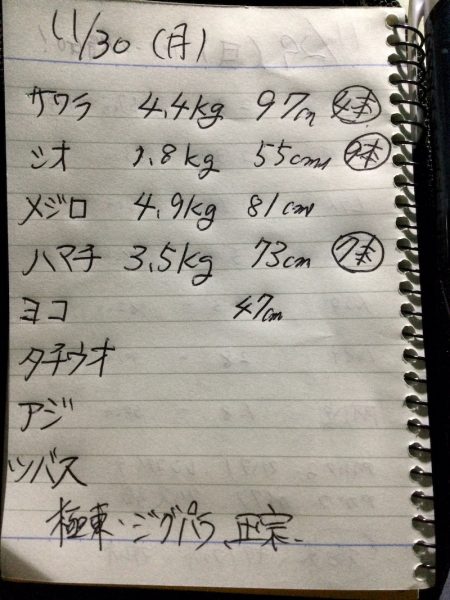 11/30 (月)
サワラ 4.4kg 97cm 4本
シオ 1.8kg 55cm
メジロ 4.9kg 81cm
ハマチ 3.5kg 73cm 7本
ヨコ 47cm
タチウオ
アジ
ツバス
極東・ジグパラ、正宗、